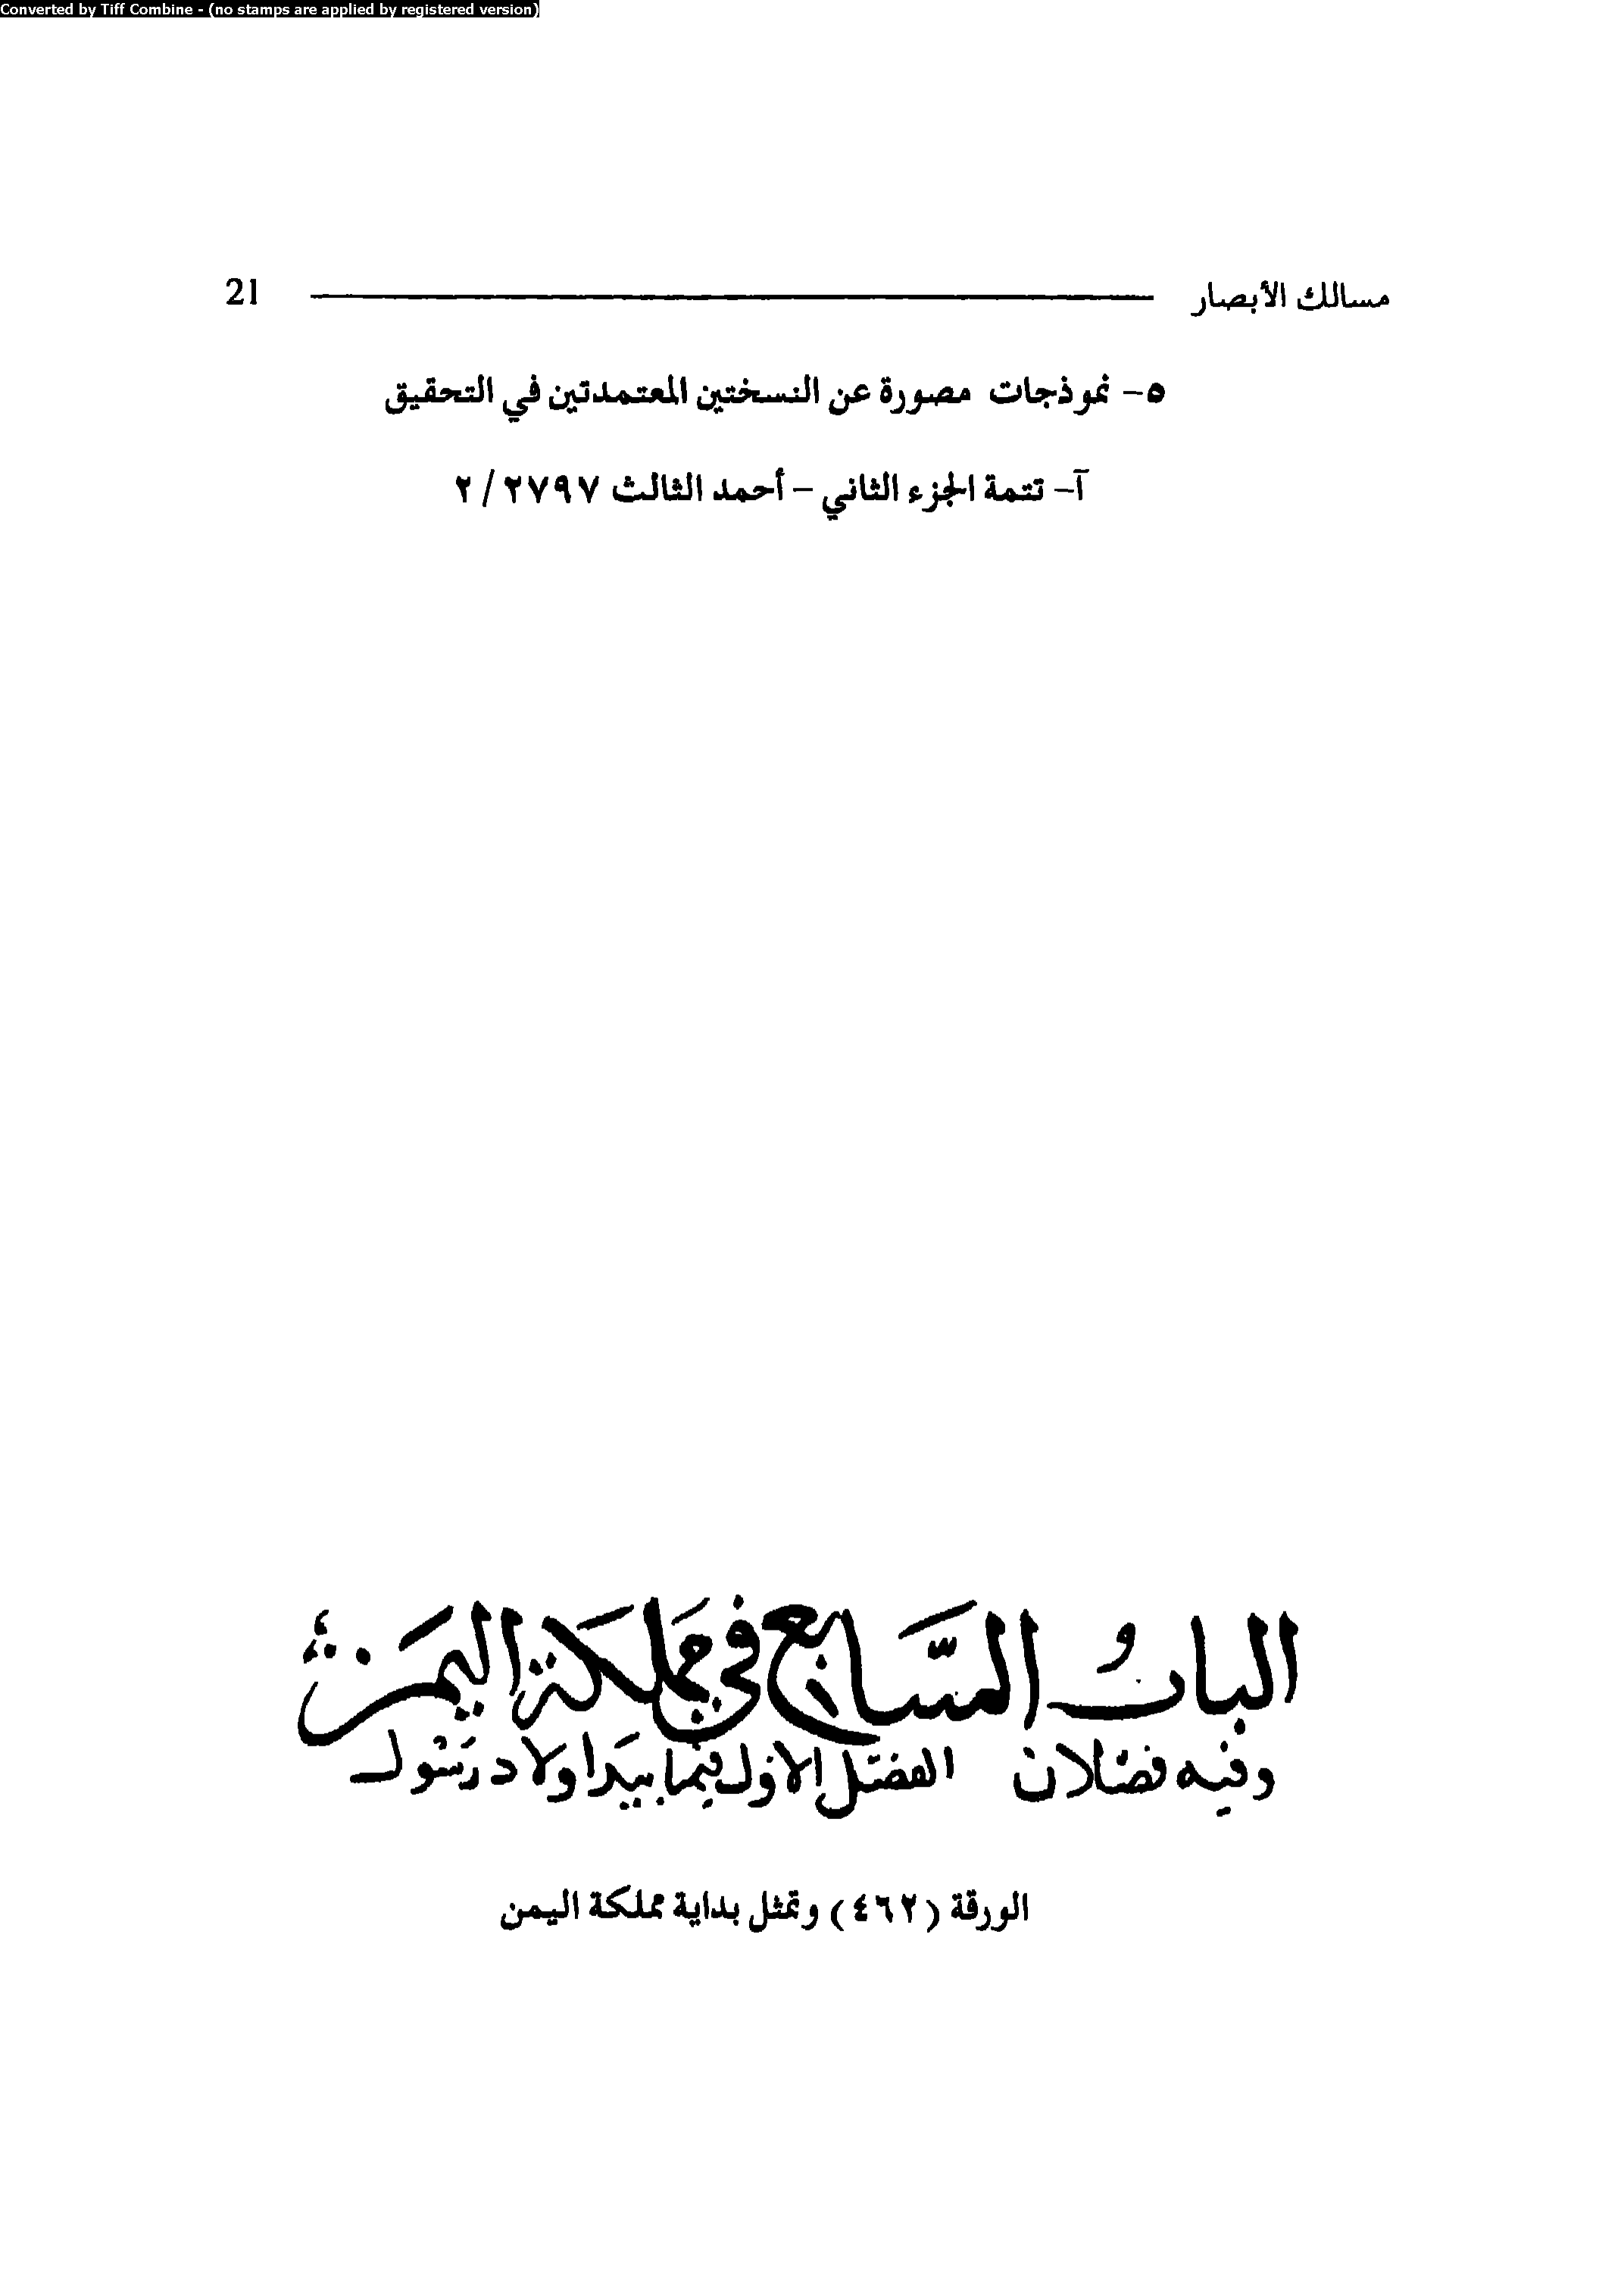 Converted by Tiff Combine - (no stamps are applied by registered version)
مسالك الأبصار 21
٥- نموذجات مصورة عن النسختين المعتمدتين في التحقيق
آ- تتمة الجزء الثاني - أحمد الثالث ٢٧٩٧ / ٢
الباب السابع في مملكة اليمن
وفيه فصلان الفصل الاول فيما بيد اولاد رسول
الورقة (٤٦٢) وتمثل بداية مملكة اليمن